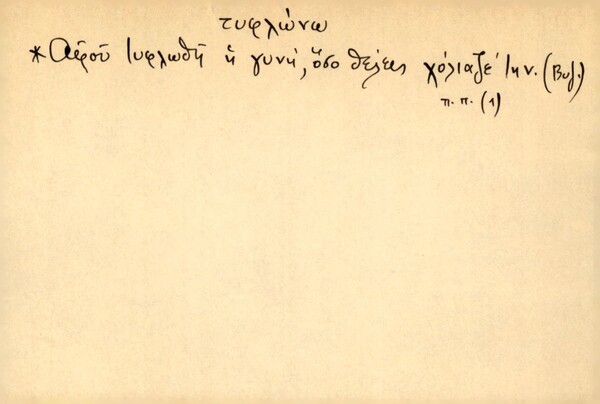 τυφλώνω
* Ἀφοῦ τυφλωθῇ ἡ γυνή, ὅσο θέλεις χόλιαζέ την. (Βυζ.)
π. π. (1)